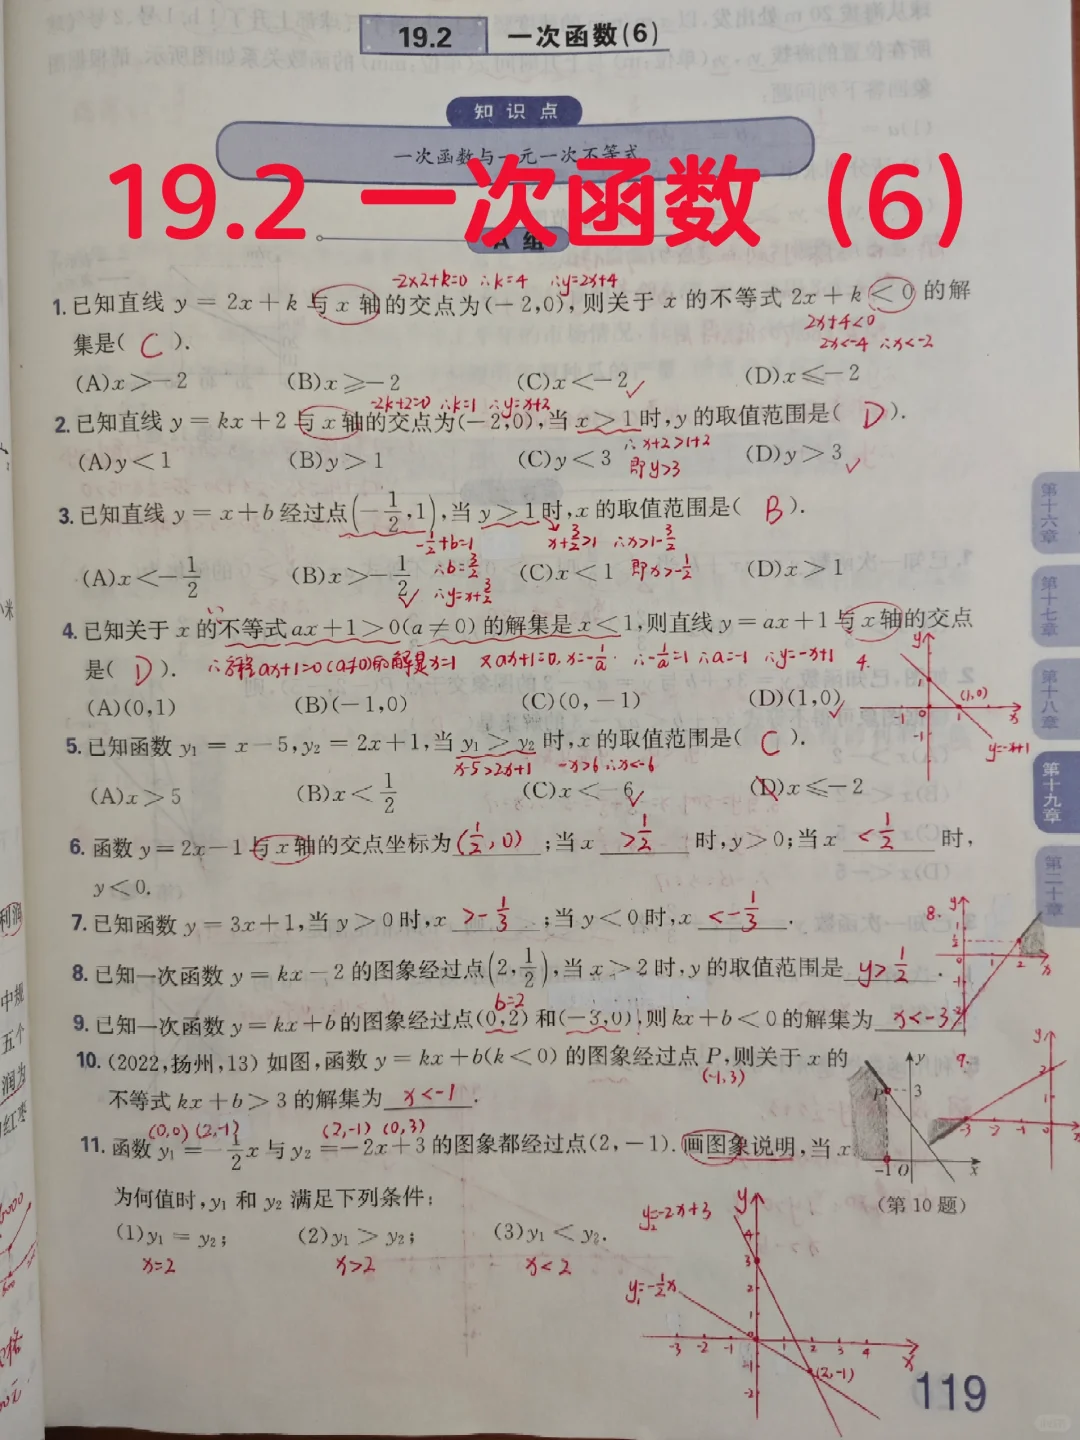 19.2 一次函数(6)
知识点
一次函数与一元一次不等式
19.2 一次函数（6）
A 组
-2×2+k=0 ∴k=4 ∴y=2x+4
1. 已知直线 y=2x+k 与 x 轴的交点为(-2,0),则关于 x 的不等式 2x+k<0 的解
2x+4<0
集是( C ).
2x<-4 ∴x<-2
(A)x>-2 (B)x≥-2 (C)x<-2 ✓ (D)x≤-2
-2k+2=0 ∴k=1 ∴y=x+2
2. 已知直线 y=kx+2 与 x 轴的交点为(-2,0),当 x>1 时,y 的取值范围是( D ).
∴x+2>1+2
(A)y<1 (B)y>1 (C)y<3 即y>3 (D)y>3 ✓
3. 已知直线 y=x+b 经过点(-1/2,1),当 y>1 时,x 的取值范围是( B ).
-1/2+b=1 x+3/2>1 ∴x>1-3/2
(A)x<-1/2 (B)x>-1/2 ✓ ∴b=3/2 (C)x<1 即x>-1/2 (D)x>1
∴y=x+3/2
4. 已知关于 x 的不等式 ax+1>0(a≠0) 的解集是 x<1,则直线 y=ax+1 与 x 轴的交点
是( D ). ∴方程ax+1=0(a≠0)的解是x=1 又ax+1=0, x=-1/a. ∴-1/a=1 ∴a=-1 ∴y=-x+1
4. y 1 (1,0) -1 0 1 x -1 y=-x+1
(A)(0,1) (B)(-1,0) (C)(0,-1) (D)(1,0) ✓
5. 已知函数 y₁=x-5,y₂=2x+1,当 y₁>y₂ 时,x 的取值范围是( C ).
x-5>2x+1 -x>6 ∴x<-6
(A)x>5 (B)x<1/2 (C)x<-6 ✓ (D)x≤-2
6. 函数 y=2x-1 与 x 轴的交点坐标为 (1/2,0) ;当 x >1/2 时,y>0;当 x <1/2 时,
y<0.
7. 已知函数 y=3x+1,当 y>0 时,x >-1/3 ;当 y<0 时,x <-1/3 .
8. 已知一次函数 y=kx-2 的图象经过点(2,1/2),当 x>2 时,y 的取值范围是 y>1/2 .
b=2
9. 已知一次函数 y=kx+b 的图象经过点(0,2)和(-3,0),则 kx+b<0 的解集为 x<-3
10. (2022,扬州,13) 如图,函数 y=kx+b(k<0) 的图象经过点 P,则关于 x 的
(-1,3)
不等式 kx+b>3 的解集为 x<-1 .
(0,0) (2,-1) (2,-1) (0,3)
11. 函数 y₁=-1/2x 与 y₂=-2x+3 的图象都经过点(2,-1). 画图象说明,当 x
为何值时,y₁ 和 y₂ 满足下列条件:
(1)y₁=y₂; (2)y₁>y₂; (3)y₁<y₂.
x=2 x>2 x<2
8. y 1 1/2 1 2 x -1
9. y 2 1 -3 -2 -1 0 x
y P 3 -1 O x
(第 10 题)
y₂=-2x+3
y₁=-1/2x
y 4 3 2 1 -3 -2 -1 0 1 2 3 4 x -1 -2 (2,-1)
119
第十六章
第十七章
第十八章
第十九章
第二十章